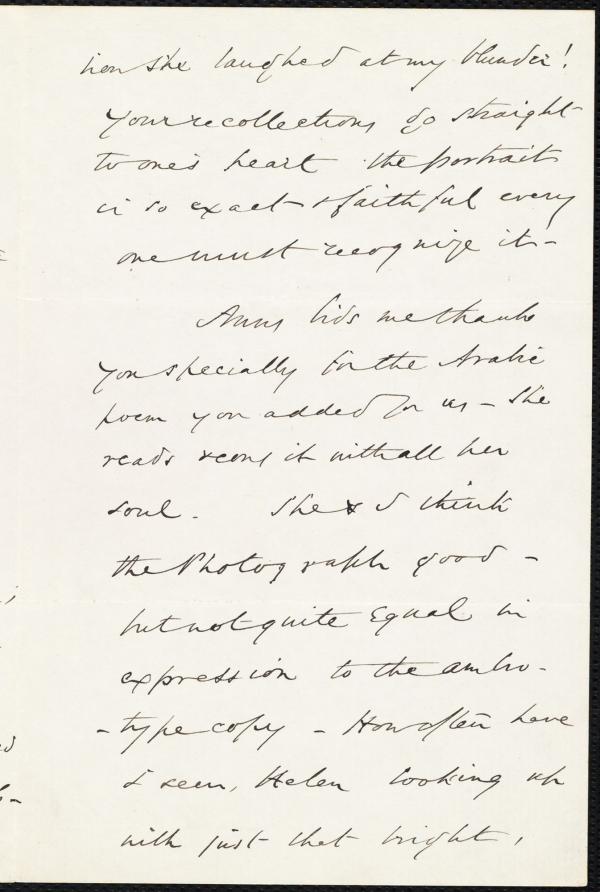 how she laughed at my blunder!
Your recollections go straight
to one's heart the portrait
is so exact & faithful every
one must recognize it -
Anny bids me thank
you specially for the Arabic
poem you added for us - She
reads & it with all her
soul. She & I think
the Photograph good -
but not quite Equal in
expression to the ambro-
-type copy - How often have
I seen, Helen looking up
with just that bright,